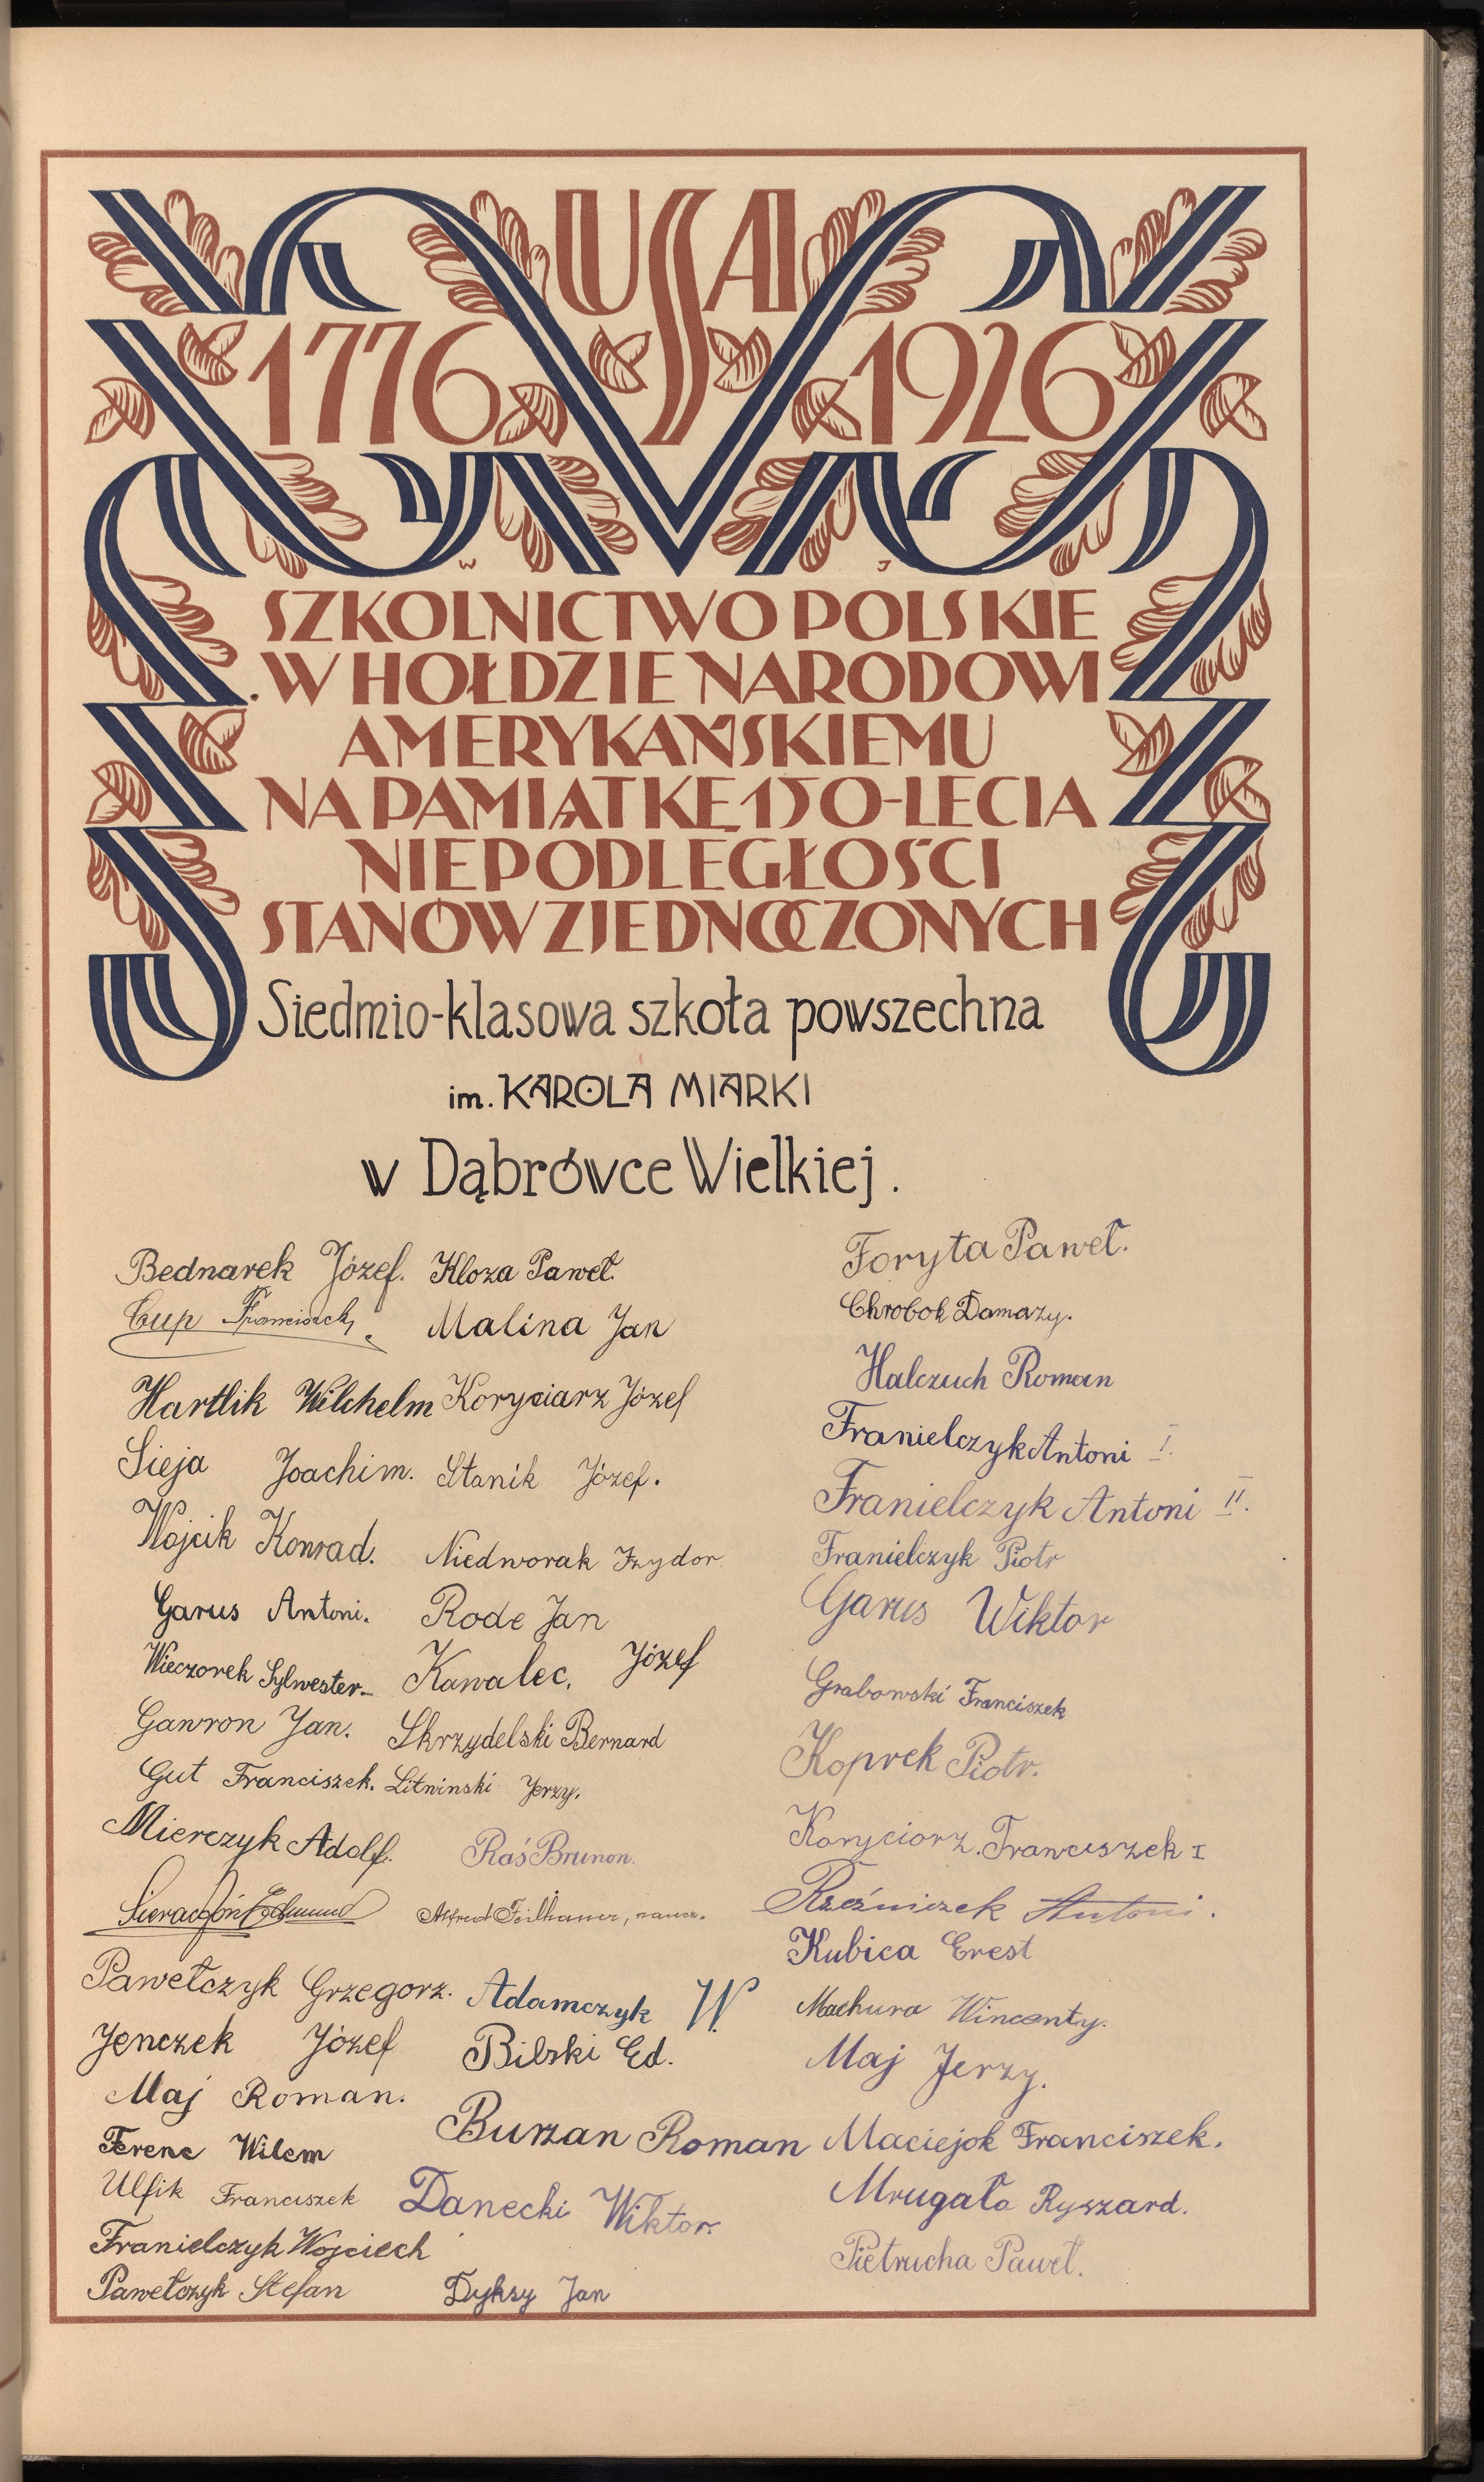 USA
1776 1926
W J
SZKOLNICTWO POLSKIE
W HOŁDZIE NARODOWI
AMERYKAŃSKIEMU
NA PAMIĄTKĘ 150-LECIA
NIEPODLEGŁOŚCI
STANÓW ZJEDNOCZONYCH
Siedmio-klasowa szkoła powszechna
im. KAROLA MIARKI
w Dąbrówce Wielkiej.
Bednarek Józef.
Cup Franciszek
Hartlik Wilchelm
Sieja Joachim.
Wojcik Konrad.
Garus Antoni.
Wieczorek Sylwester
Gawron Jan.
Gut Franciszek.
Mierczyk Adolf.
Edmund
Pawełczyk Grzegorz.
Jenczek Józef
Maj Roman.
Ferenc Wilem
Ulfik Franciszek
Franielczyk Wojciech
Pawełczyk Stefan
Kloza Paweł.
Malina Jan
Koryciarz Józef
Stanik Józef.
Niedworak Izydor
Rode Jan
Kawalec, Józef
Skrzydelski Bernard
Litwinski Jerzy.
Raś Brunon.
Alfred Feilhauer, naucz.
Adamczyk W.
Bilski Ed.
Burzan Roman
Danecki Wiktor
Dyksy Jan
Foryta Paweł.
Chrobok Damazy.
Halczuch Roman
Franielczyk Antoni I.
Franielczyk Antoni II.
Franielczyk Piotr
Garus Wiktor
Grabowski Franciszek
Koprek Piotr.
Koryciorz Franciszek I
Rzeźniczek Antoni.
Kubica Erest
Machura Wincenty.
Maj Jerzy.
Maciejok Franciszek.
Mrugała Ryszard.
Pietrucha Paweł.